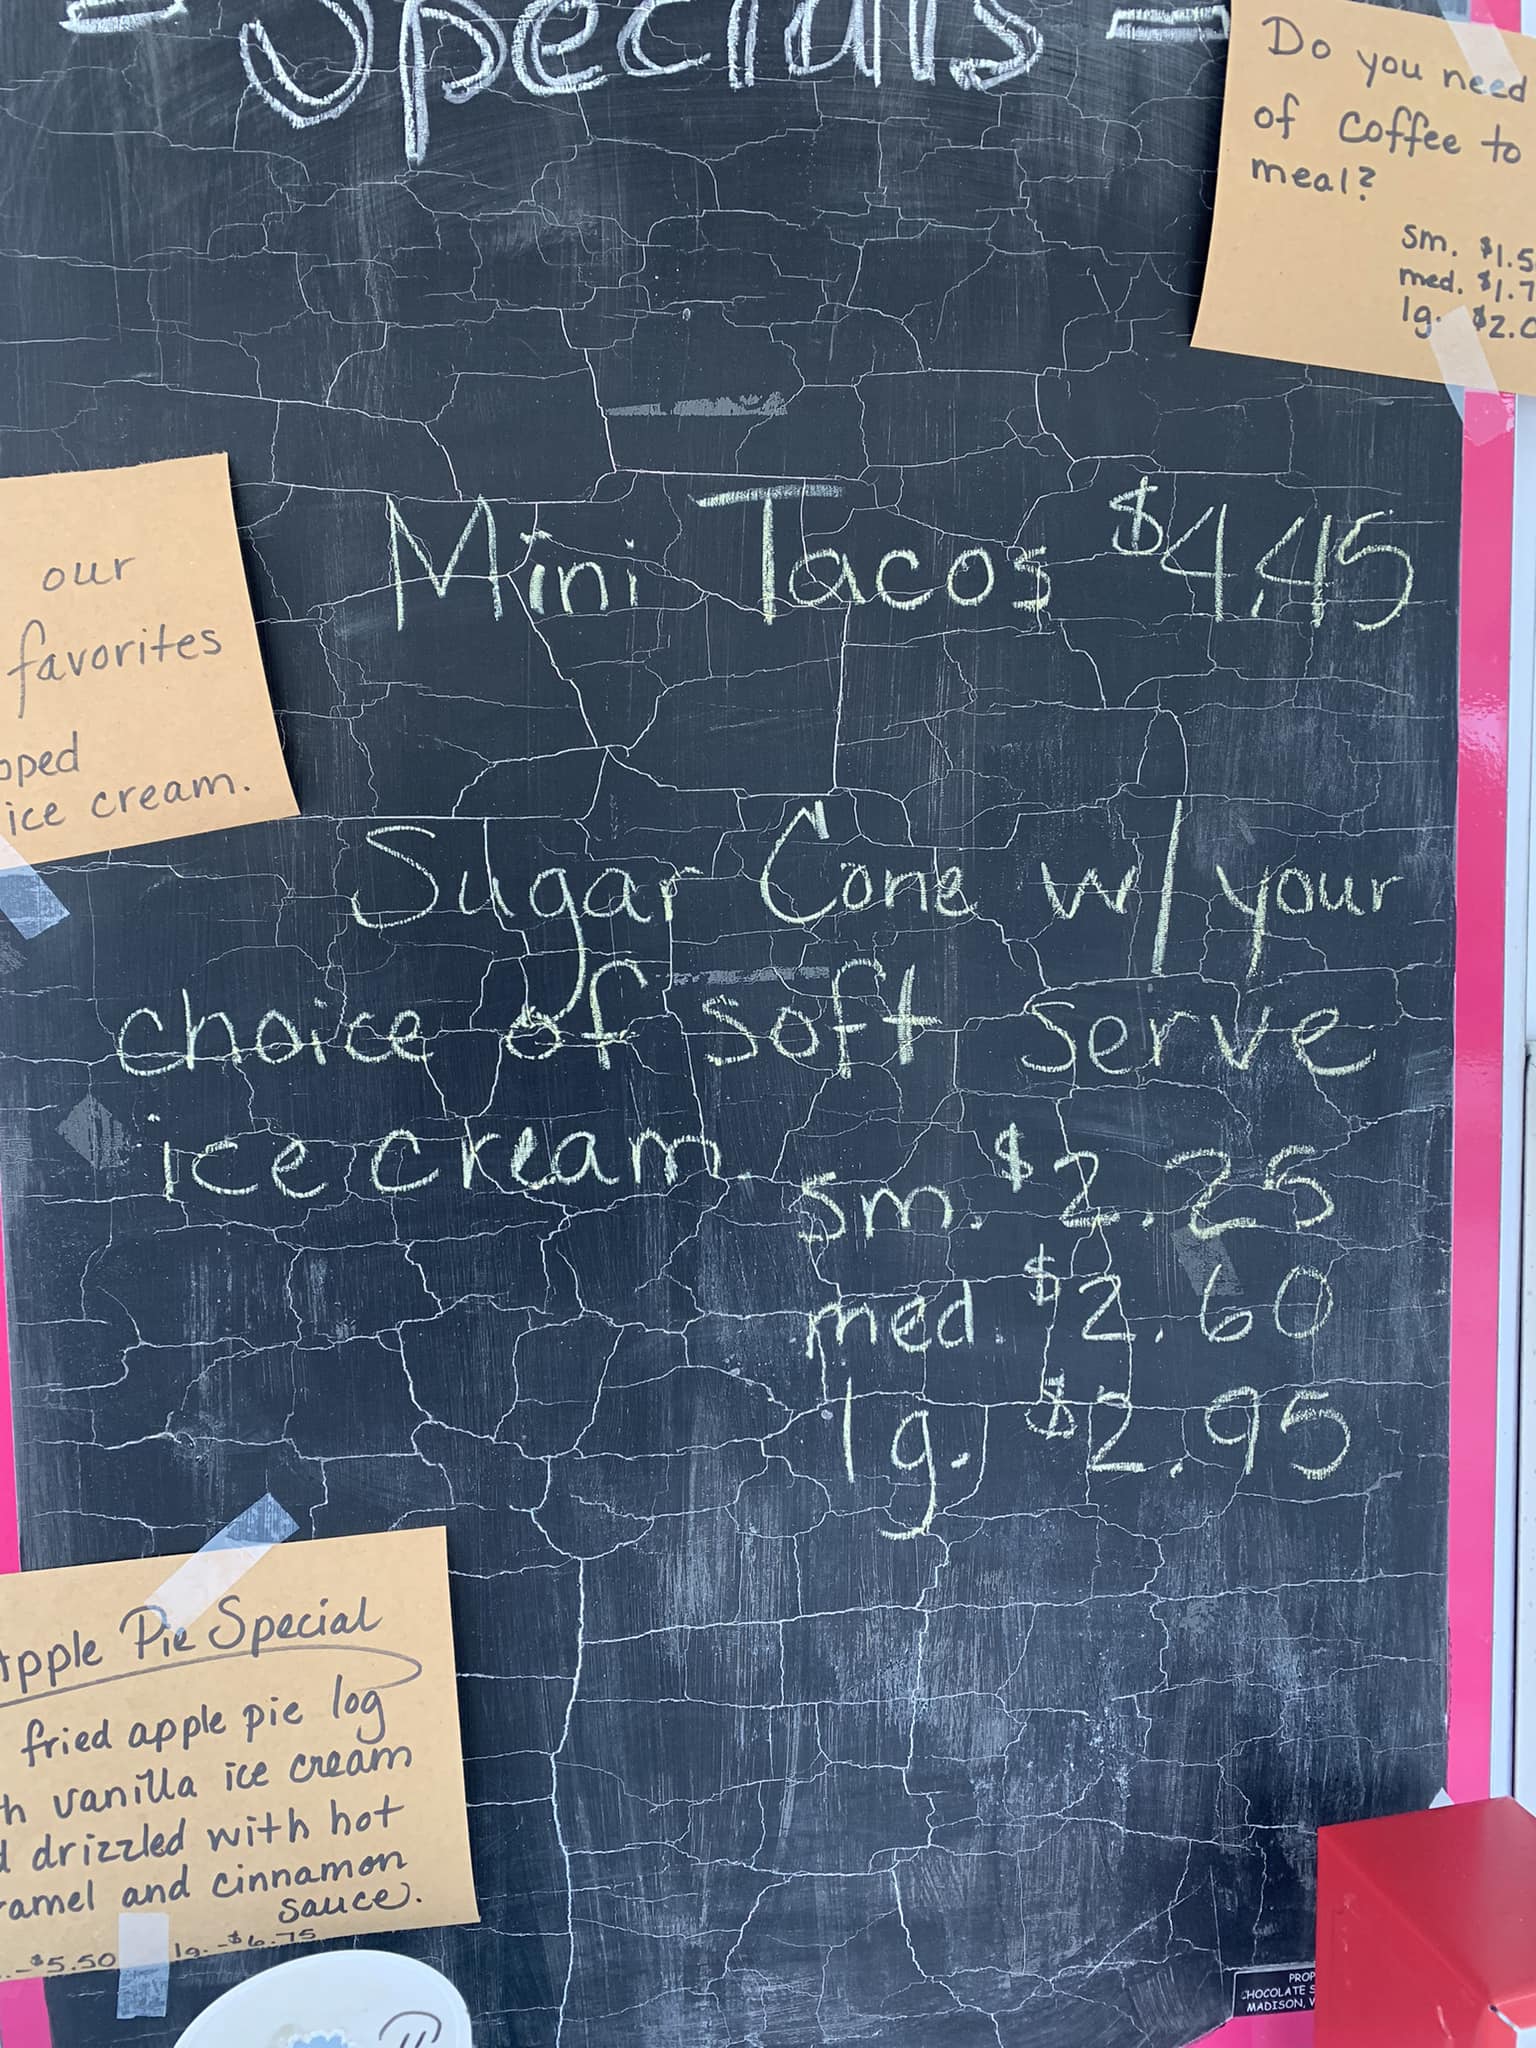 - Specials -
Do you need
of coffee to
meal?
sm. $1.5
med. $1.7
lg. $2.0
our
favorites
pped
ice cream.
Mini Tacos $4.45
Sugar Cone w/ your
choice of soft serve
ice cream.
sm. $2.25
med. $2.60
lg. $2.95
Apple Pie Special
fried apple pie log
h vanilla ice cream
d drizzled with hot
ramel and cinnamon
sauce.
. -$5.50 lg. -$6.75
PROP
CHOCOLATE S
MADISON, V